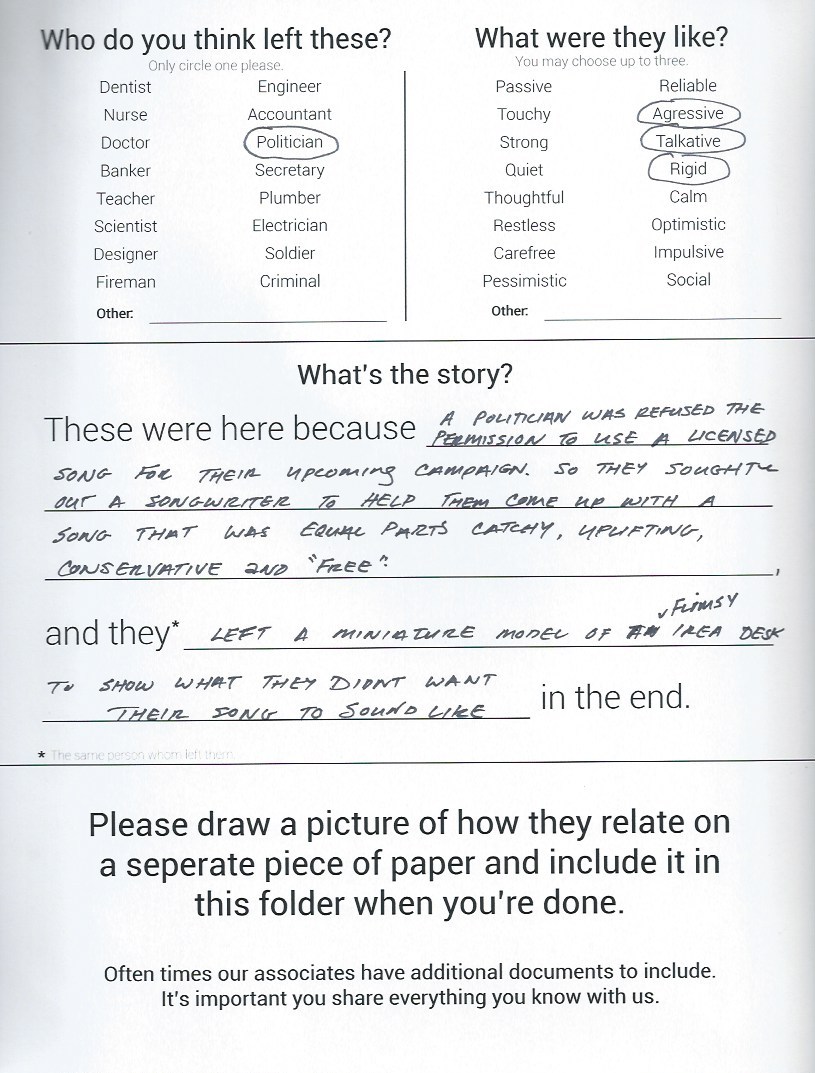 Who do you think left these?
Only circle one please.
Dentist
Nurse
Doctor
Banker
Teacher
Scientist
Designer
Fireman
Engineer
Accountant
Politician
Secretary
Plumber
Electrician
Soldier
Criminal
Other:
What were they like?
You may choose up to three.
Passive
Touchy
Strong
Quiet
Thoughtful
Restless
Carefree
Pessimistic
Reliable
Agressive
Talkative
Rigid
Calm
Optimistic
Impulsive
Social
Other:
What's the story?
These were here because A POLITICIAN WAS REFUSED THE
PERMISSION TO USE A LICENSED
SONG FOR THEIR UPCOMING CAMPAIGN. SO THEY SOUGHT
OUT A SONGWRITER TO HELP THEM COME UP WITH A
SONG THAT WAS EQUAL PARTS CATCHY, UPLIFTING,
CONSERVATIVE AND "FREE".,
FLIMSY
and they* LEFT A MINIATURE MODEL OF AN IKEA DESK
TO SHOW WHAT THEY DIDNT WANT
THEIR SONG TO SOUND LIKE in the end.
* The same person whom left them.
Please draw a picture of how they relate on
a seperate piece of paper and include it in
this folder when you're done.
Often times our associates have additional documents to include.
It's important you share everything you know with us.